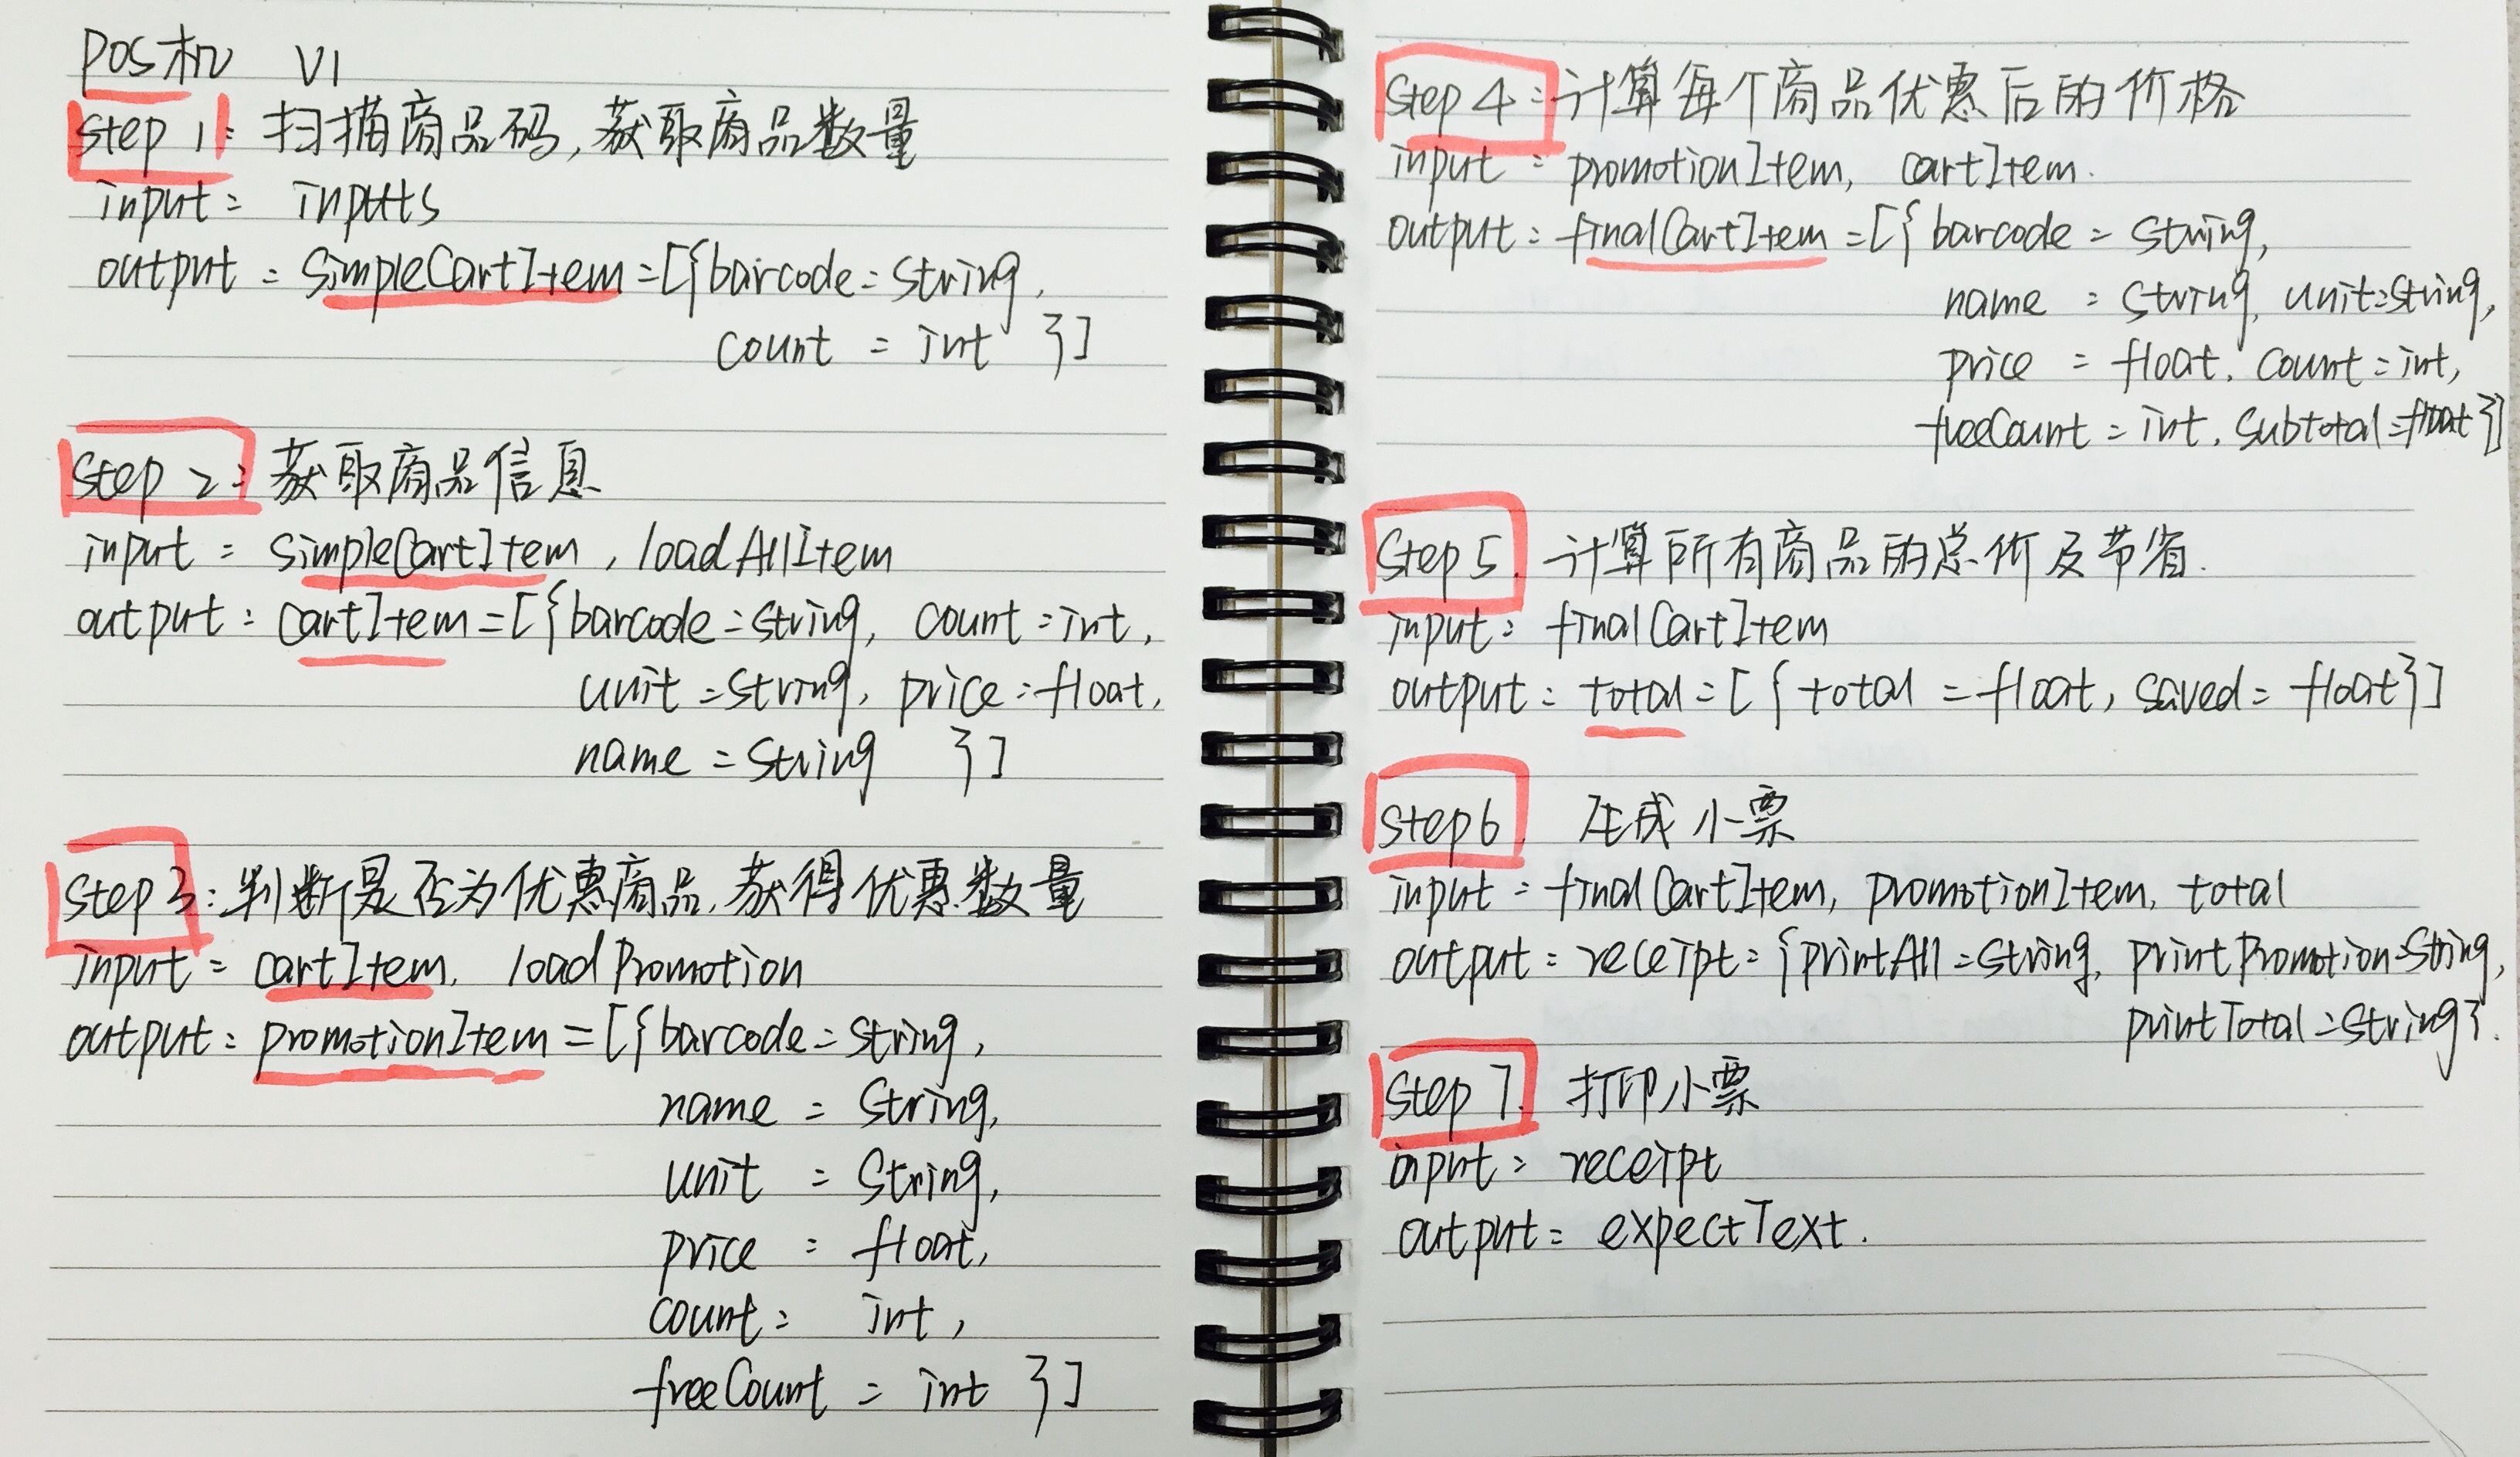 pos机 V1
step 1: 扫描商品码,获取商品数量
input: inputs
output: simpleCartItem=[{barcode:string,
count : int }]
step 2: 获取商品信息
input : simpleCartItem, loadAllItem
output: cartItem=[{barcode:string, count:int,
unit:string, price:float,
name:string }]
step 3: 判断是否为优惠商品,获得优惠数量
input : cartItem, loadPromotion
output: promotionItem=[{barcode:string,
name : string,
unit : string,
price : float,
count: int,
freeCount : int }]
step 4: 计算每个商品优惠后的价格
input : promotionItem, cartItem.
output: finalCartItem=[{barcode: string,
name : string, unit:string,
price : float, count:int,
freeCount : int, subtotal:float}]
step 5. 计算所有商品的总价及节省.
input: finalCartItem
output: total=[{total :float, saved: float}]
step 6. 生成小票
input : finalCartItem, promotionItem, total
output: receipt={printAll:string, printPromotion:string,
printTotal:string}.
step 7. 打印小票
input: receipt
output: expectText.